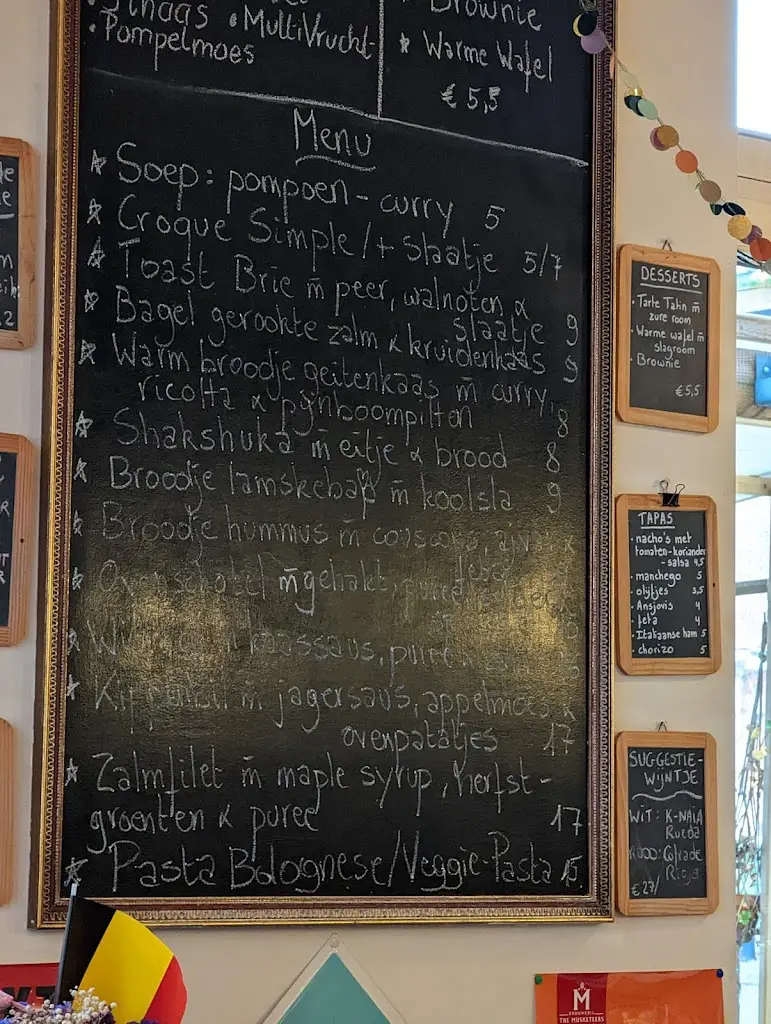 • MultiVrucht-
• Pompelmoes
Brownie
* Warme Wafel
€ 5,5
Menu
* Soep: pompoen-curry 5
* Croque Simple/+ Slaatje 5/7
* Toast Brie m̄ peer, walnoten &
slaatje 9
* Bagel gerookte zalm & kruidenkaas 9
* Warm broodje geitenkaas m̄ curry,
ricotta & pijnboompitten 8
* Shakshuka m̄ eitje & brood 8
* Broodje lamskebap m̄ koolsla 9
* Broodje hummus m̄
feta
* Ovenschotel m̄ gehakt, puree
kaassaus, puree
* m̄ jagersaus, appelmoes &
ovenpatatjes 17
* Zalmfilet m̄ maple syrup, herfst-
groenten & puree 17
* Pasta Bolognese/Veggie-Pasta 15
DESSERTS
• Tarte Tatin m̄
zure room
• Warme wafel m̄
slagroom
• Brownie
€5,5
TAPAS
• nacho's met
tomaten-koriander
-salsa 4,5
• manchego 5
• olijfjes 3,5
• Ansjovis 4
• feta 4
• Italiaanse ham 5
• chorizo 5
SUGGESTIE-
WIJNTJE
WIT: K-NAIA
Rueda
ROOD:
Rioja
€27/
M
BROUWERIJ
THE MUSKETEERS